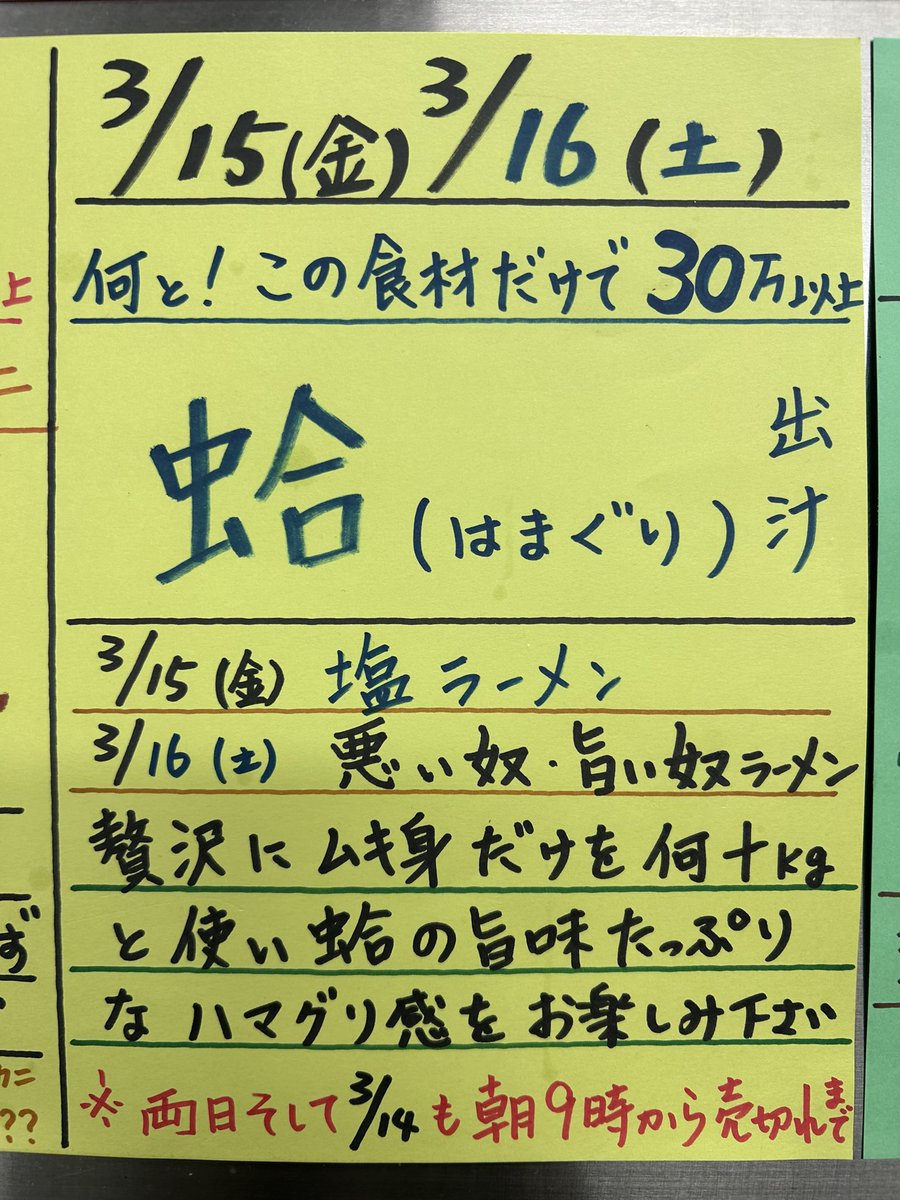 3/15(金) 3/16(土)
何と!この食材だけで30万以上
蛤(はまぐり)出汁
3/15(金) 塩ラーメン
3/16(土) 悪い奴・旨い奴ラーメン
贅沢にムキ身だけを何十kg
と使い蛤の旨味たっぷり
なハマグリ感をお楽しみ下さい
※両日そして3/14も朝9時から売切れまで
上
ニ
ず
カニ
??